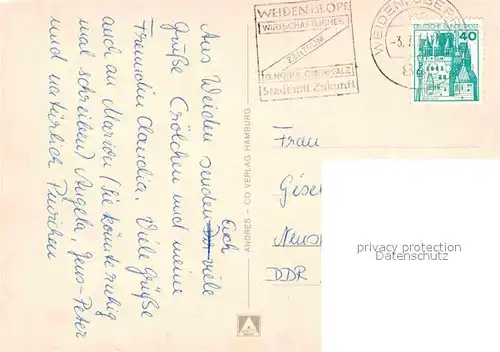 WEIDEN I.D.OPF.
WIRTSCHAFTLICHES
ZENTRUM
D. NÖRDL. OBERPFALZ
Stadt mit Zukunft
WEIDEN, OBERP
-3.
8
DEUTSCHE BUNDESPOST
40
Aus Weiden senden Euch viele
Grüße Csölchen und meine
Freundin Claudia. Viele Grüße
auch an Marion (Sie könnte ruhig
mal schreiben) Angela, Jens-Peter
und natürlich
ANDRES - CO VERLAG HAMBURG
Frau
Gisel
Neus
DDR
privacy protection
Datenschutz